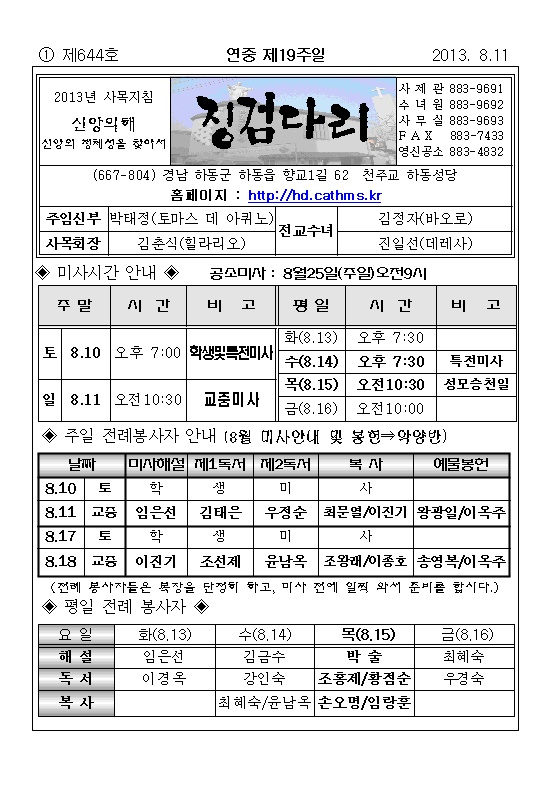 ① 제644호 연중 제19주일 2013. 8.11
2013년 사목지침
신앙의해
신앙의 정체성을 찾아서
징검다리
사 제 관 883-9691
수 녀 원 883-9692
사 무 실 883-9693
F A X 883-7433
영신공소 883-4832
(667-804) 경남 하동군 하동읍 향교1길 62 천주교 하동성당
홈페이지 : http://hd.cathms.kr
주임신부 박태정(토마스 데 아퀴노) 전교수녀 김정자(바오로)
사목회장 김춘식(힐라리오) 진일선(데레사)
◈ 미사시간 안내 ◈ 공소미사 : 8월25일(주일)오전9시
주 말 시 간 비 고 평 일 시 간 비 고
토 8.10 오후 7:00 학생및특전미사 화(8.13) 오후 7:30
수(8.14) 오후 7:30 특전미사
일 8.11 오전10:30 교중미사 목(8.15) 오전10:30 성모승천일
금(8.16) 오전10:00
◈ 주일 전례봉사자 안내 (8월 미사안내 및 봉헌⇒악양반)
날짜 미사해설 제1독서 제2독서 복 사 예물봉헌
8.10 토 학 생 미 사
8.11 교중 임은선 김태은 우정순 최문열/이진기 왕광일/이옥주
8.17 토 학 생 미 사
8.18 교중 이진기 조선제 윤남옥 조왕래/이종호 송영복/이옥주
(전례 봉사자들은 복장을 단정히 하고, 미사 전에 일찍 와서 준비를 합시다.)
◈ 평일 전례 봉사자 ◈
요 일 화(8.13) 수(8.14) 목(8.15) 금(8.16)
해 설 임은선 김금수 박 술 최혜숙
독 서 이경옥 강인숙 조홍제/황점순 우경숙
복 사 최혜숙/윤남옥 손오명/임랑훈